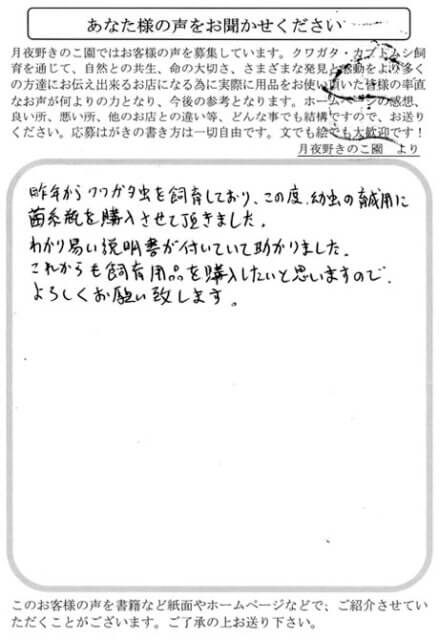 あなた様の声をお聞かせください
月夜野きのこ園ではお客様の声を募集しています。クワガタ・カブトムシ飼
育を通じて、自然との共生、命の大切さ、さまざまな発見と感動をより多く
の方達にお伝え出来るお店になる為に実際に用品をお使い頂いた皆様の率直
なお声が何よりの力となり、今後の参考となります。ホームページの感想、
良い所、悪い所、他のお店との違い等、どんな事でも結構ですので、お送り
ください。応募はがきの書き方は一切自由です。文でも絵でも大歓迎です！
月夜野きのこ園 より
昨年からクワガタ虫を飼育しており、この度、幼虫の育成用に
菌糸瓶を購入させて頂きました。
わかり易い説明書が付いていて助かりました。
これからも飼育用品を購入したいと思いますので、
よろしくお願い致します。
このお客様の声を書籍など紙面やホームページなどで、ご紹介させてい
ただくことがございます。ご了承の上お送り下さい。